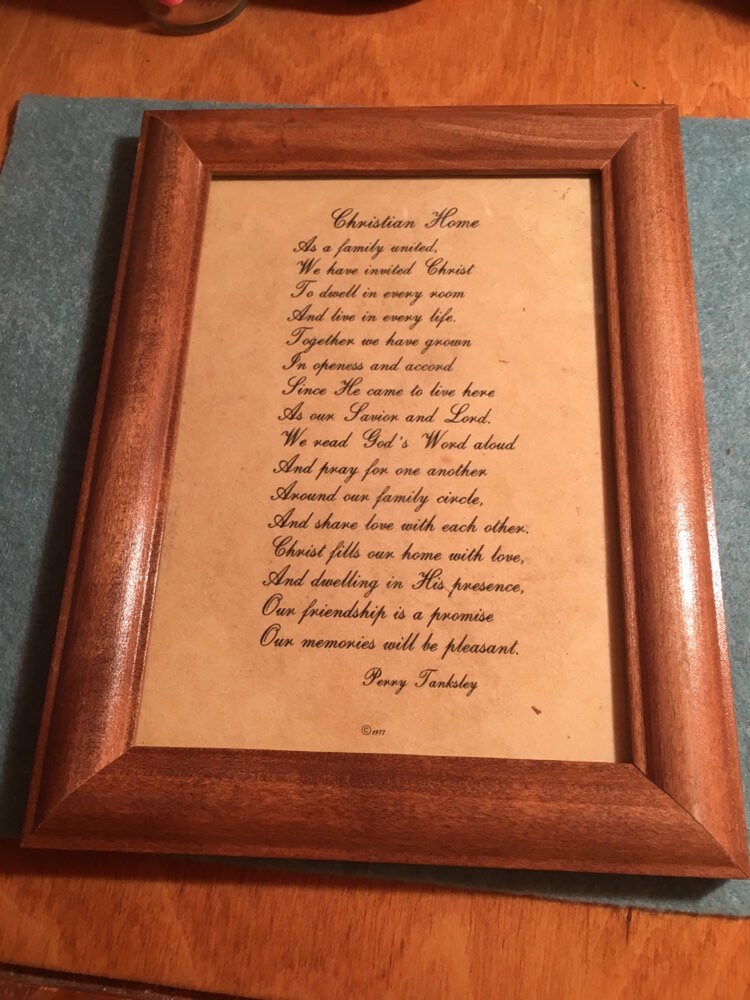 Christian Home
As a family united,
We have invited Christ
To dwell in every room
And live in every life.
Together we have grown
In openess and accord
Since He came to live here
As our Savior and Lord.
We read God's Word aloud
And pray for one another
Around our family circle,
And share love with each other.
Christ fills our home with love,
And dwelling in His presence,
Our friendship is a promise
Our memories will be pleasant.
Perry Tanksley
©1977